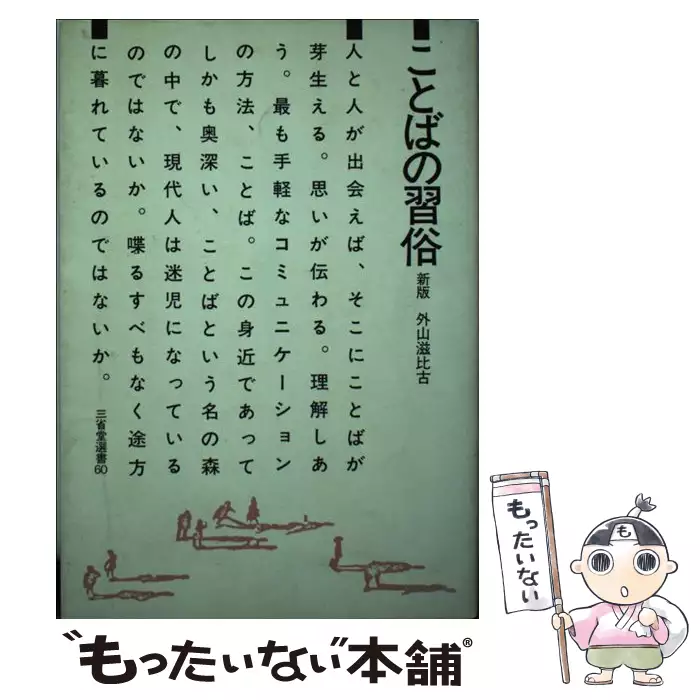 ことばの習俗
新版 外山滋比古
人と人が出会えば、そこにことばが
芽生える。思いが伝わる。理解しあ
う。最も手軽なコミュニケーション
の方法、ことば。この身近であって
しかも奥深い、ことばという名の森
の中で、現代人は迷児になっている
のではないか。喋るすべもなく途方
に暮れているのではないか。
三省堂選書60
も
もったいない
"もったいない本舗®